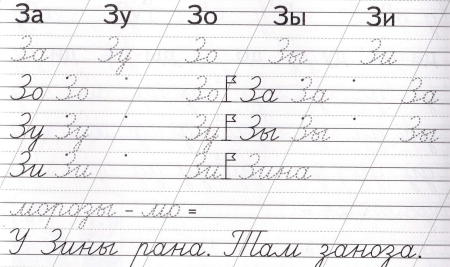 За Зу Зо Зы Зи
За Зу Зо Зы Зи
Зо Зо Зо За За За
Зу Зу Зу Зы Зы Зы
Зи Зи Зи Зина
морозы - мо =
У Зины рана. Там заноза.